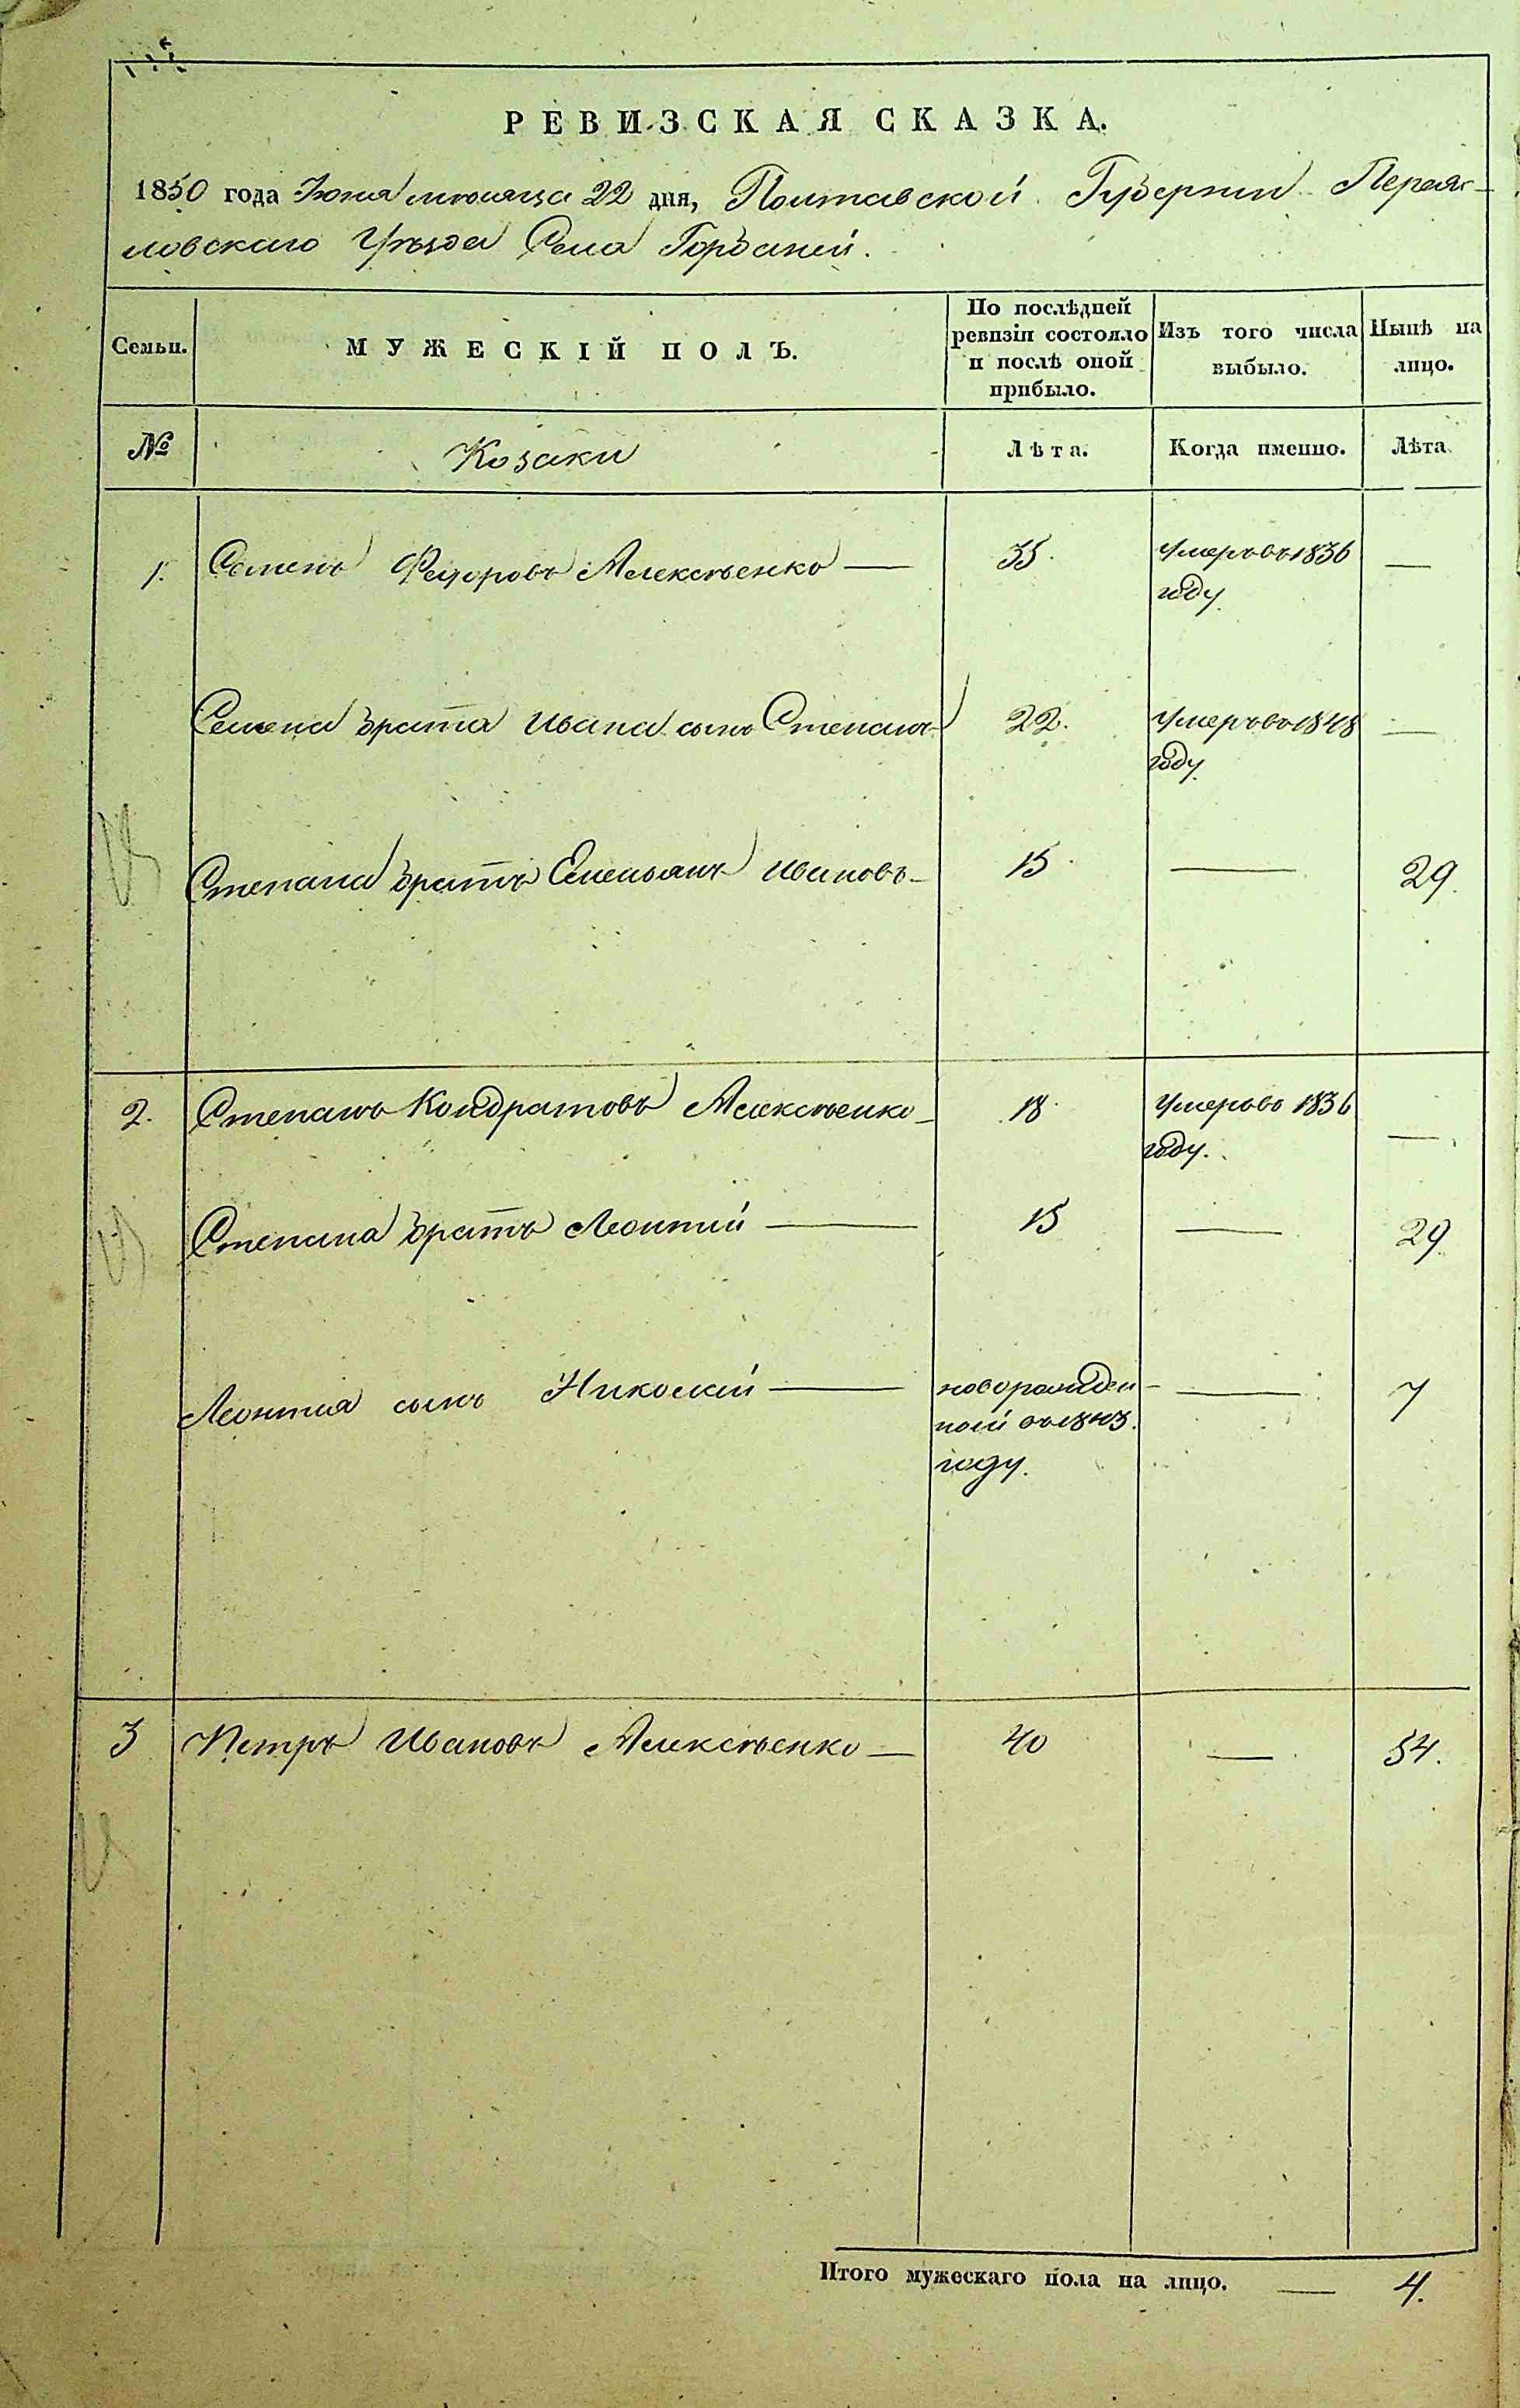 РЕВИЗСКАЯ СКАЗКА.
1850 года Іюня мѣсяца 22 дня, Полтавской Губерніи Переяс-
ловскаго Уѣзда Села Горбаней.
Семьи.
МУЖЕСКІЙ ПОЛЪ.
По послѣдней
ревизіи состояло
и послѣ оной
прибыло.
Изъ того числа
выбыло.
Нынѣ на
лицо.
№
Козаки
Лѣта.
Когда именно.
Лѣта.
1. Семенъ Федоровъ Алексѣенко — 35. Умеръ въ 1836 —
году.
Семена брата Ивана сынъ Степанъ 22. Умеръ въ 1848 —
году.
Степана братъ Емельянъ Ивановъ — 15 — 29.
2. Степанъ Кондратовъ Алексѣенко — 18 Умеръ въ 1836 —
году.
Степана братъ Леонтий — 15 — 29.
Леонтия сынъ Николай — новорожден- — 7
ной въ 1843.
году.
3 Петръ Ивановъ Алексѣенко — 40 — 54.
Итого мужескаго пола на лицо. — 4.